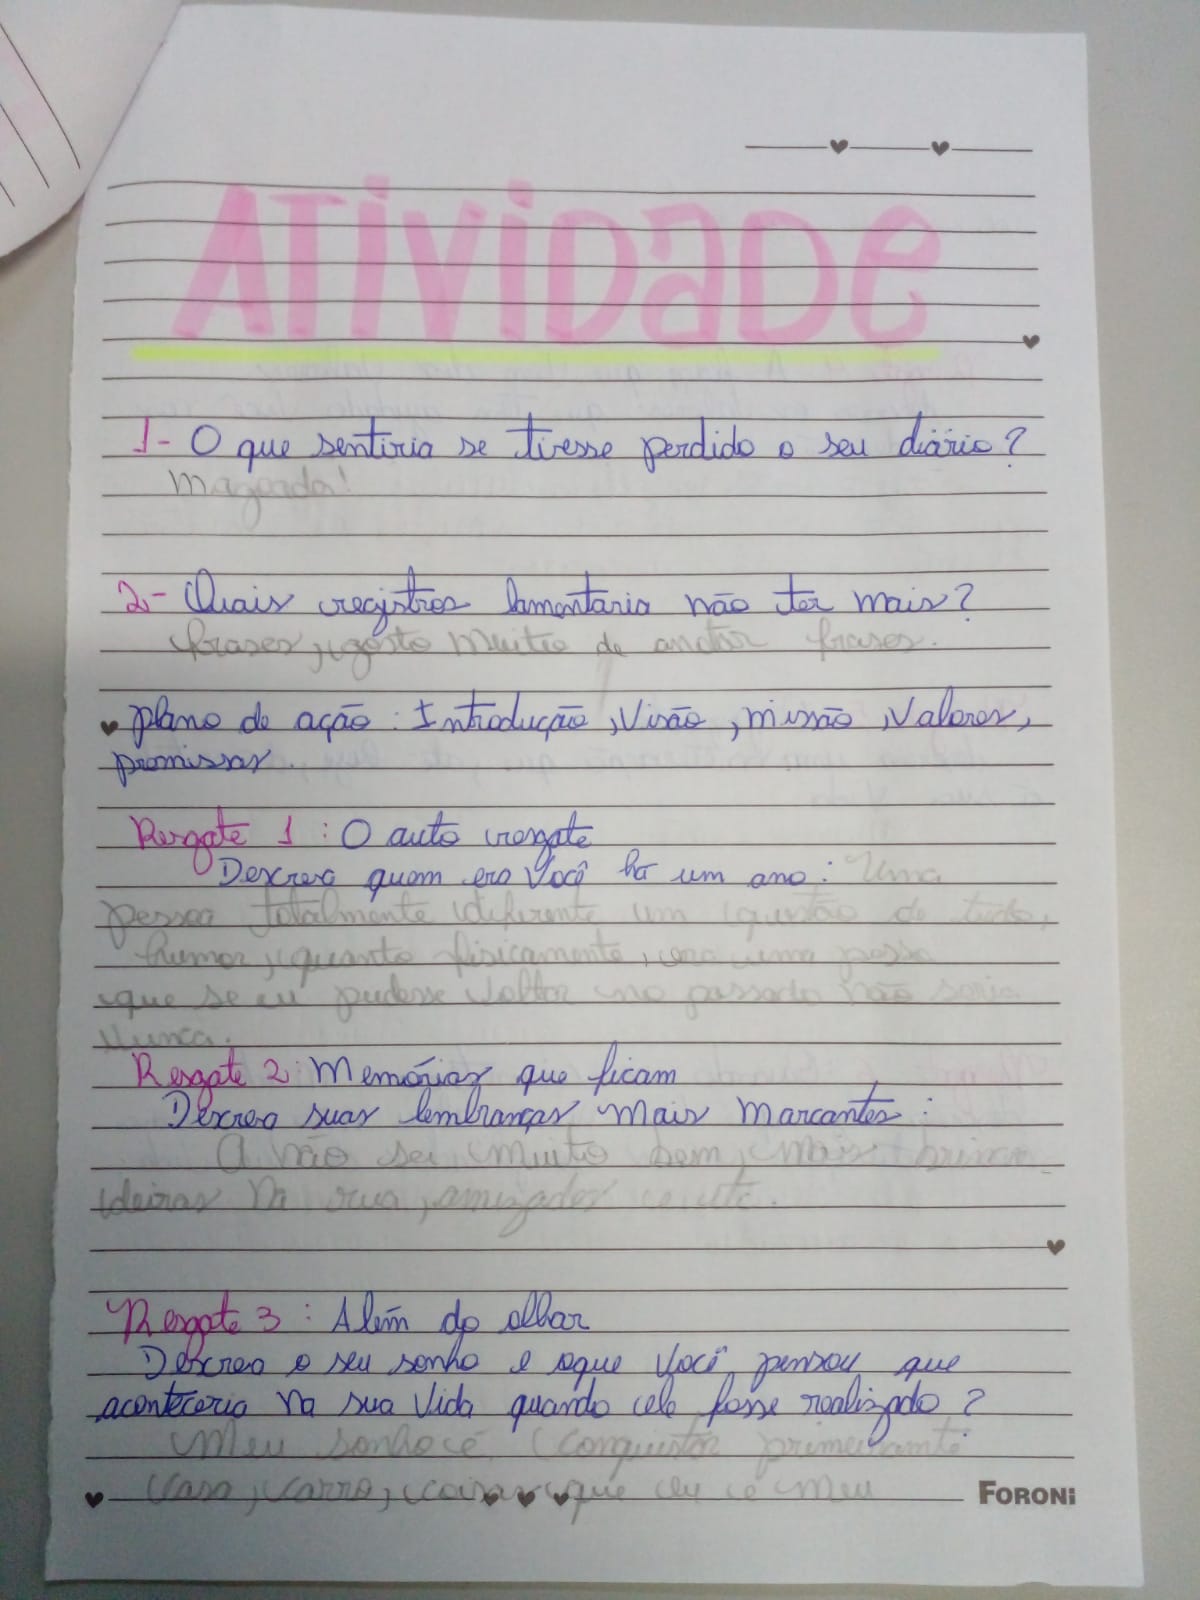 ATIVIDADE
1- O que sentiria se tivesse perdido o seu diário?
Magoada!
2- Quais registros lamentaria não ter mais?
frases, gosto muito de anotar frases.
plano de ação: Introdução, Visão, missão, Valores,
promissas.
Resgate 1: O auto resgate
Descreva quem era Você há um ano: Uma
pessoa totalmente diferente um questão de tudo,
humor, quanto fisicamente, era uma pessoa
que se eu pudesse voltar no passado não seria
Nunca.
Resgate 2: Memórias que ficam
Descreva suas lembranças mais marcantes:
A não sei muito bem, mais brinca-
deiras na rua, amizades e etc.
Resgate 3: Além do olhar
Descreva o seu sonho e oque Você pensou que
aconteceria na sua Vida quando ele fosse realizado?
Meu sonho é conquistar primeiramente
Casa, carro, coisas que eu e meu
FORONI